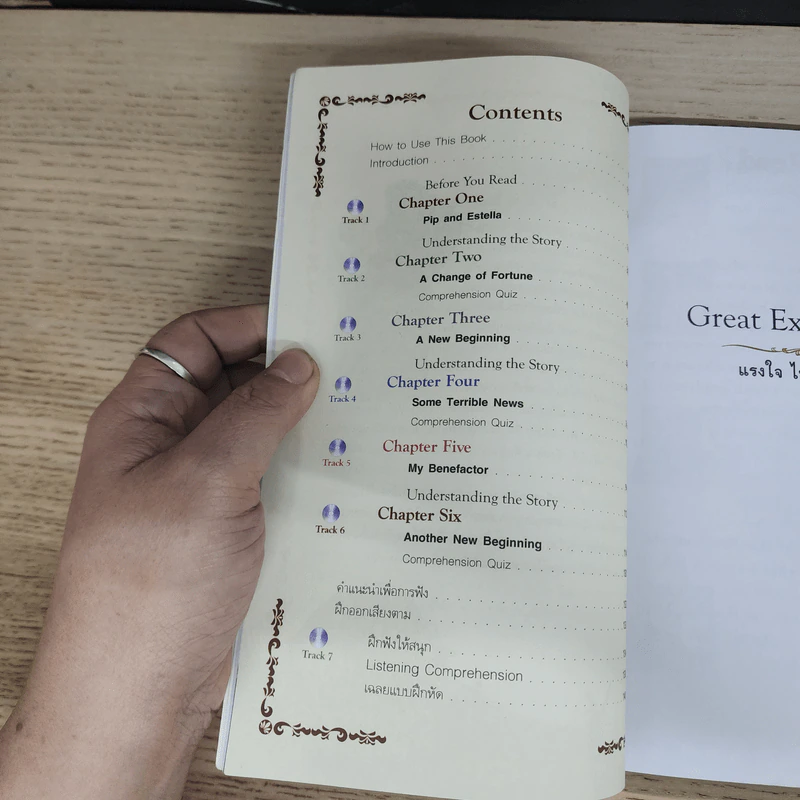 Contents
How to Use This Book
Introduction
Before You Read
Chapter One
Track 1
Pip and Estella
Understanding the Story
Chapter Two
Track 2
A Change of Fortune
Comprehension Quiz
Chapter Three
Track 3
A New Beginning
Understanding the Story
Chapter Four
Track 4
Some Terrible News
Comprehension Quiz
Chapter Five
Track 5
My Benefactor
Understanding the Story
Chapter Six
Track 6
Another New Beginning
Comprehension Quiz
คำแนะนำเพื่อการฟัง
ฝึกออกเสียงตาม
ฝึกฟังให้สนุก
Track 7
Listening Comprehension
เฉลยแบบฝึกหัด
Great Ex
แรงใจ